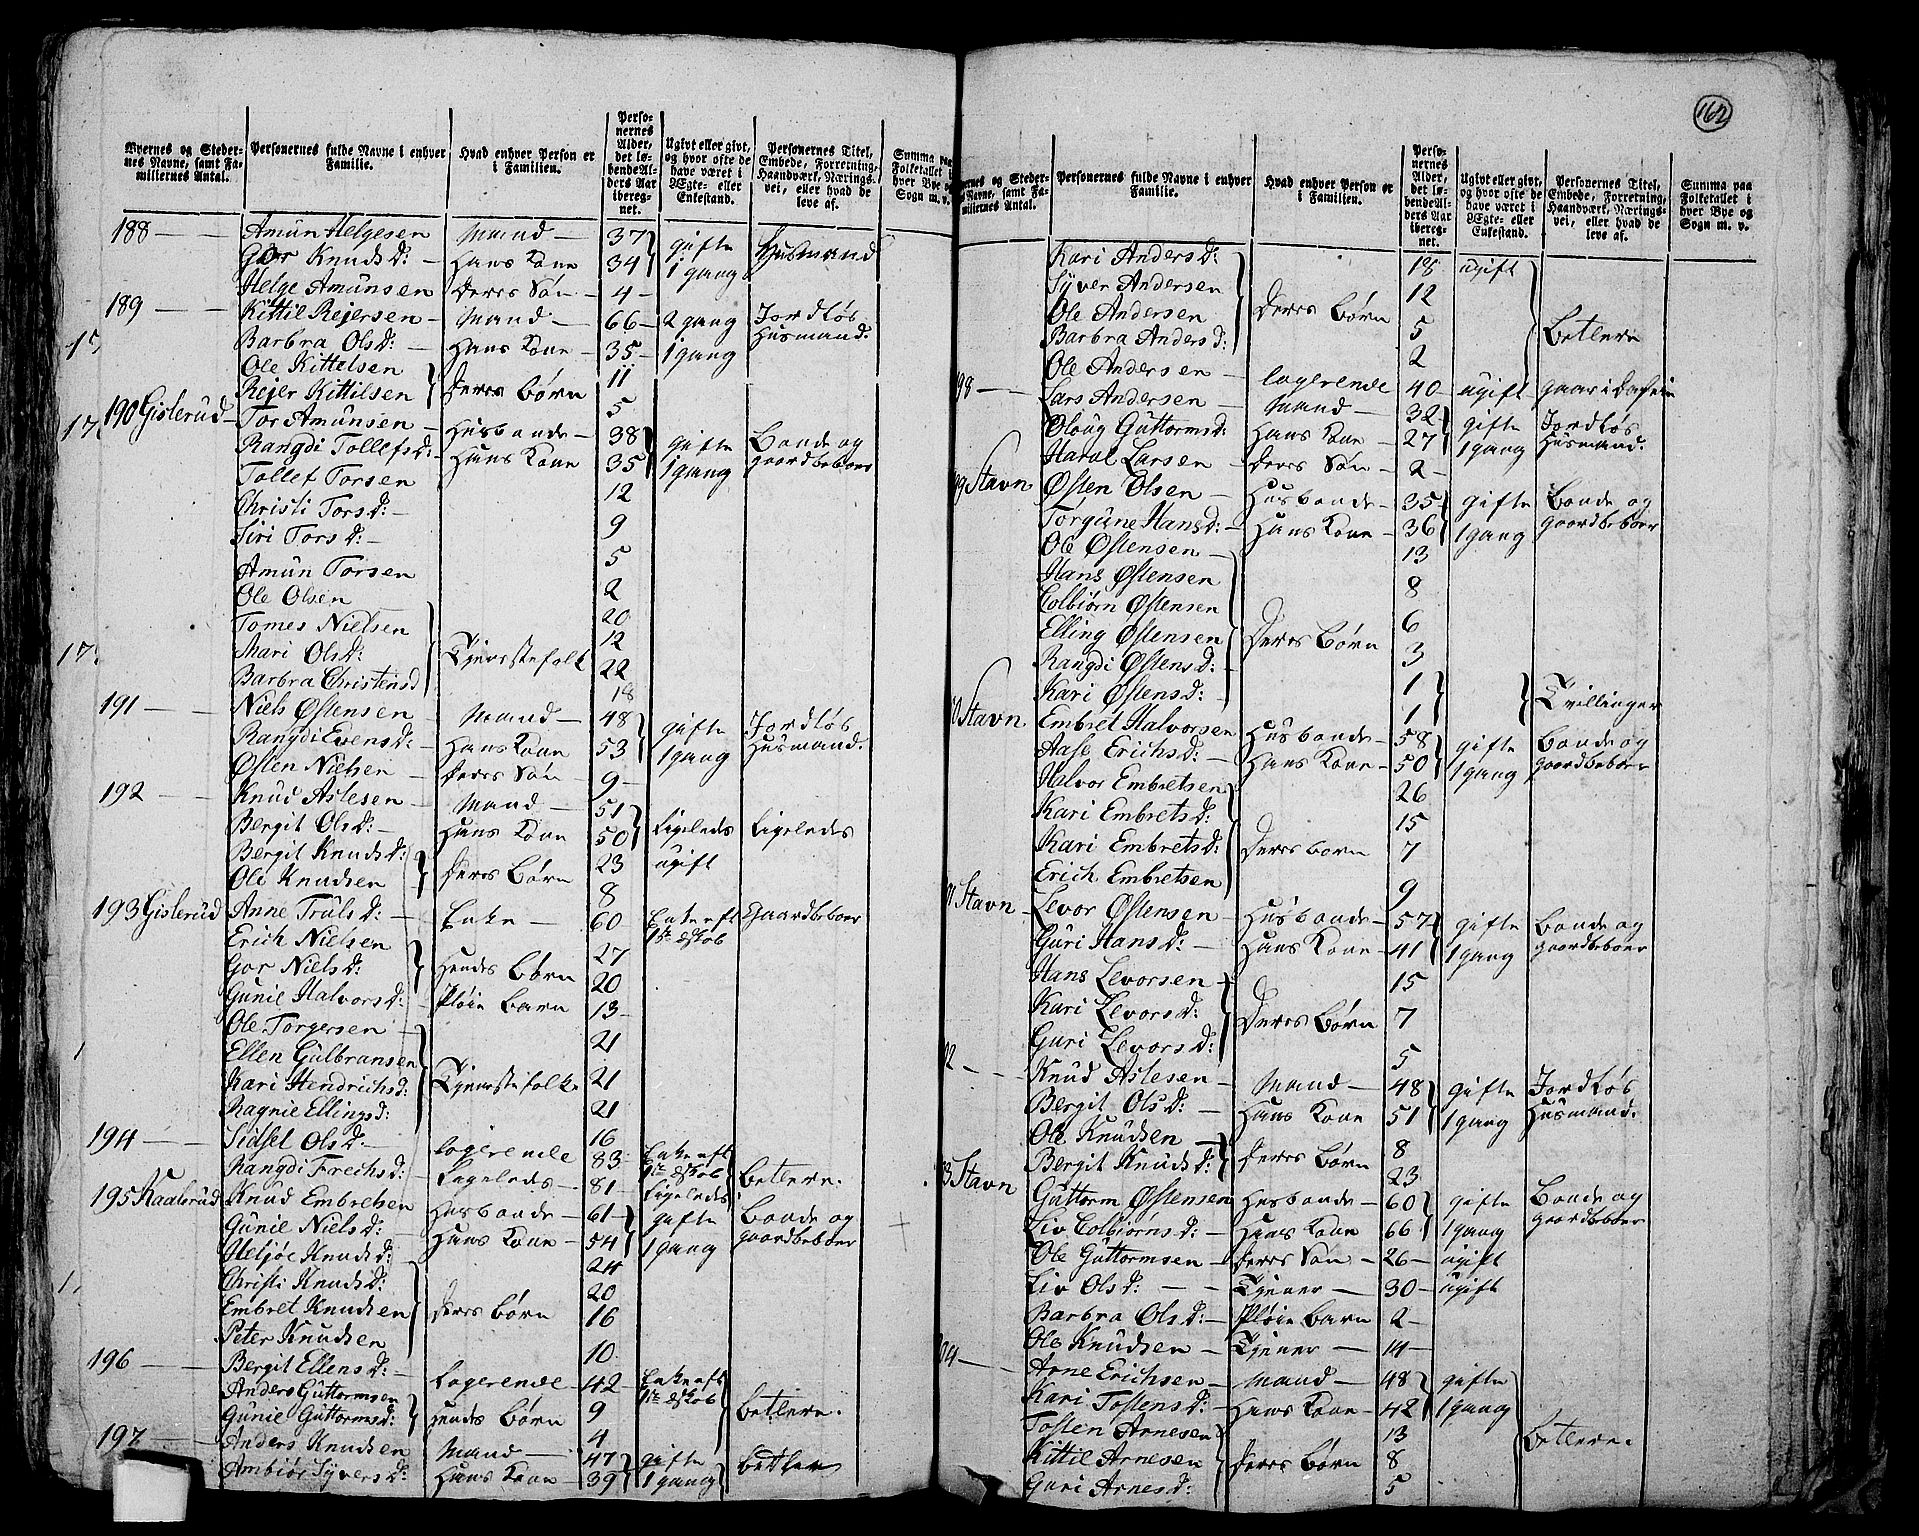 162
Byernes og Steder-
nes Navne, samt Fa-
miliernes Antal.
Personernes fulde Navne i enhver
Familie.
Hvad enhver Person er
i Familien.
Perso-
nernes
Alder,
det lø-
bende Al-
ders Aar
ibereg-
net.
Ugivt eller givt,
og hvor ofte de
have været i
Ægte- eller
Enkestand.
Personernes Titel,
Embede, Forretning,
Haandværk, Nærings-
vei, eller hvad de
leve af.
Summa paa
Folketallet i
hver Bye og
Sogn m. v.
188 Amun Helgesen Mand 37 gifte Husmand
Gor Knuds d: Hans Kone 34 1 gang
Helge Amunsen Deres Søn 4
189 Kittil Rejersen Mand 66 2 gang Jordløs
Barbra Ols d: Hans Kone 35 1 gang Husmand.
Ole Kittelsen 11
Rejer Kittilsen Deres Børn 5
190 Gislerud Tor Amunsen Husbonde 38 gifte Bonde og
Rangdi Tollefs d: Hans Kone 35 1 gang gaardbeboer
Tollef Torsen 12
Christi Tors d: 9
Siri Tors d: 5
Amun Torsen 2
Ole Olsen 20
Tomes Nielsen 12
Mari Ols d: Tjenistefolk 22
Barbra Christens d 18
191 Niels Østensen Mand 48 gifte Jordløs
Rangdi Evens d: Hans Kone 53 1 gang Husmand.
Østen Nielsen Deres Søn 9
192 Knud Aslesen Mand 51
Bergit Ols d: Hans Kone 50 Ligeledes Ligeledes
Bergit Knuds d: 23 ugift
Ole Knudsen Deres Børn 8
193 Gislerud Anne Truls d: Enke 60 Enke eft Gaardbeboer
Erich Nielsen 27
Gor Niels d: Hendes Børn 20
Gunil Halvors d: Pløie Barn 13
Ole Torgersen 21
Ellen Gulbransen 21
Kari Hendrichs d: Tjenistefolke 21
Ragnie Ellings d: 16
194 Sidsel Ols d: logerende 83 Enke eft
Rangdi Frechs d: Ligeledes 81 Ligeledes Betlere.
195 Kaalsrud Knud Embretsen Husbonde 61 gifte Bonde og
Gunil Niels d: Hans Kone 54 1 gang gaardbeboer
Heljøe Knuds d: 24
Christi Knuds d: 20
Embret Knudsen Deres Børn 16
Peter Knudsen 10
196 Bergit Ellens d: logerende 42 Enke eft
Anders Guttormsen 9
Gunil Guttorms d: Hendes Børn 4 Betlere.
197 Anders Knudsen Mand 47 gifte
Ambiør Syvers d: Hans Kone 39 1 gang Betler
ernes og Steder-
Navne, samt Fa-
miliernes Antal.
Personernes fulde Navne i enhver
Familie.
Hvad enhver Person er
i Familien.
Perso-
nernes
Alder,
det lø-
bende Al-
ders Aar
iberegn-
net.
Ugivt eller givt,
og hvor ofte de
have været i
Ægte- eller
Enkestand.
Personernes Titel,
Embede, Forretning,
Haandværk, Nærings-
vei, eller hvad de
leve af.
Summa paa
Folketallet i
hver Bye og
Sogn m. v.
Kari Anders d: 18 ugift
Syver Andersen 12
Ole Andersen Deres Børn 5
Barbra Anders d: 2 Betlere
Ole Andersen logerende 40 ugift
98 Lars Andersen Mand 32 gifte Jordløs
Oloug Guttorms d: Hans Kone 27 1 gang Husmand.
Haral Larsen Deres Søn 2
99 Stavn Østen Olsen Husbonde 35 gifte Bonde og
Torgune Hans d: Hans Kone 36 1 gang gaardbeboer
Ole Østensen 13
Hans Østensen 8
Colbiørn Østensen 6
Elling Østensen Deres Børn 3
Rangdi Østens d: 1
Kari Østens d: 1 Tvillinger
0 Stavn Embret Halvorsen Husbonde 58 gifte Bonde og
Aase Erichs d: Hans Kone 50 1 gang gaardbeboer
Halvor Embretsen 26
Kari Embrets d: 15
Kari Embrets d: Deres born 7
Erich Embretsen 9
01 Stavn Levor Østensen Husbonde 57 gifte Bonde og
Guri Hans d: Hans Kone 41 1 gang gaardbeboer
Hans Levorsen 15
Kari Levors d: Deres Børn 7
Guri Levors d: 5
02 Knud Aslesen Mand 48 gifte Jordløs
Bergit Ols d: Hans Kone 51 1 gang Husmand.
Ole Knudsen 8
Bergit Knuds d: Deres Børn 23
03 Stavn Guttorm Østensen Husbonde 60 gifte Bonde og
Liv Colbiørns d: Hans Kone 66 1 gang gaardbeboer
Ole Guttormsen Deres Søn 26 ugift
Liv Ols d: Tjener 30 ugift
Barbra Ols d: Pløie Barn 2
Ole Knudsen Tjener 14
04 Arne Erichsen Mand 48 gifte
Kari Tostens d: Hans Kone 42 1 gang
Tosten Arnesen 13
Kittil Arnesen Deres Børn 8 Betlere.
Guri Arnes d: 5